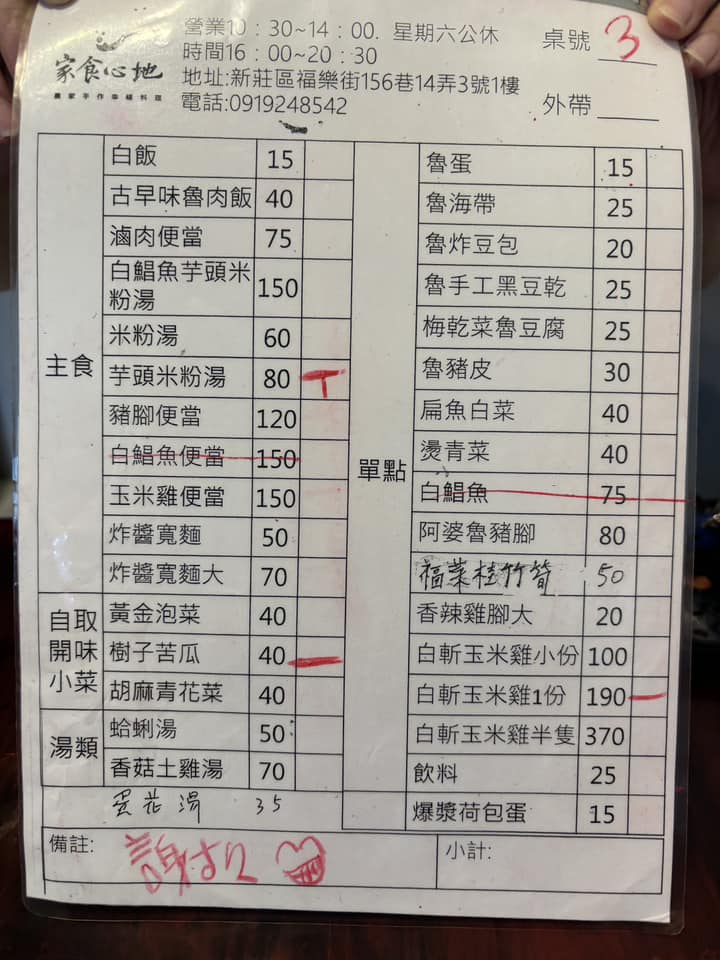 家食心地
農家手作幸福料理
營業10：30~14：00. 星期六公休
時間16：00~20：30
地址:新莊區福樂街156巷14弄3號1樓
電話:0919248542
桌號 3
外帶
主食
白飯 15
古早味魯肉飯 40
滷肉便當 75
白鯧魚芋頭米
粉湯 150
米粉湯 60
芋頭米粉湯 80 T
豬腳便當 120
白鯧魚便當 150
玉米雞便當 150
炸醬寬麵 50
炸醬寬麵大 70
自取
開味
小菜
黃金泡菜 40
樹子苦瓜 40 一
胡麻青花菜 40
湯類
蛤蜊湯 50
香菇土雞湯 70
蛋花湯 35
單點
魯蛋 15
魯海帶 25
魯炸豆包 20
魯手工黑豆乾 25
梅乾菜魯豆腐 25
魯豬皮 30
扁魚白菜 40
燙青菜 40
白鯧魚 75
阿婆魯豬腳 80
福菜桂竹筍 50
香辣雞腳大 20
白斬玉米雞小份 100
白斬玉米雞1份 190 一
白斬玉米雞半隻 370
飲料 25
爆漿荷包蛋 15
備註:
小計: